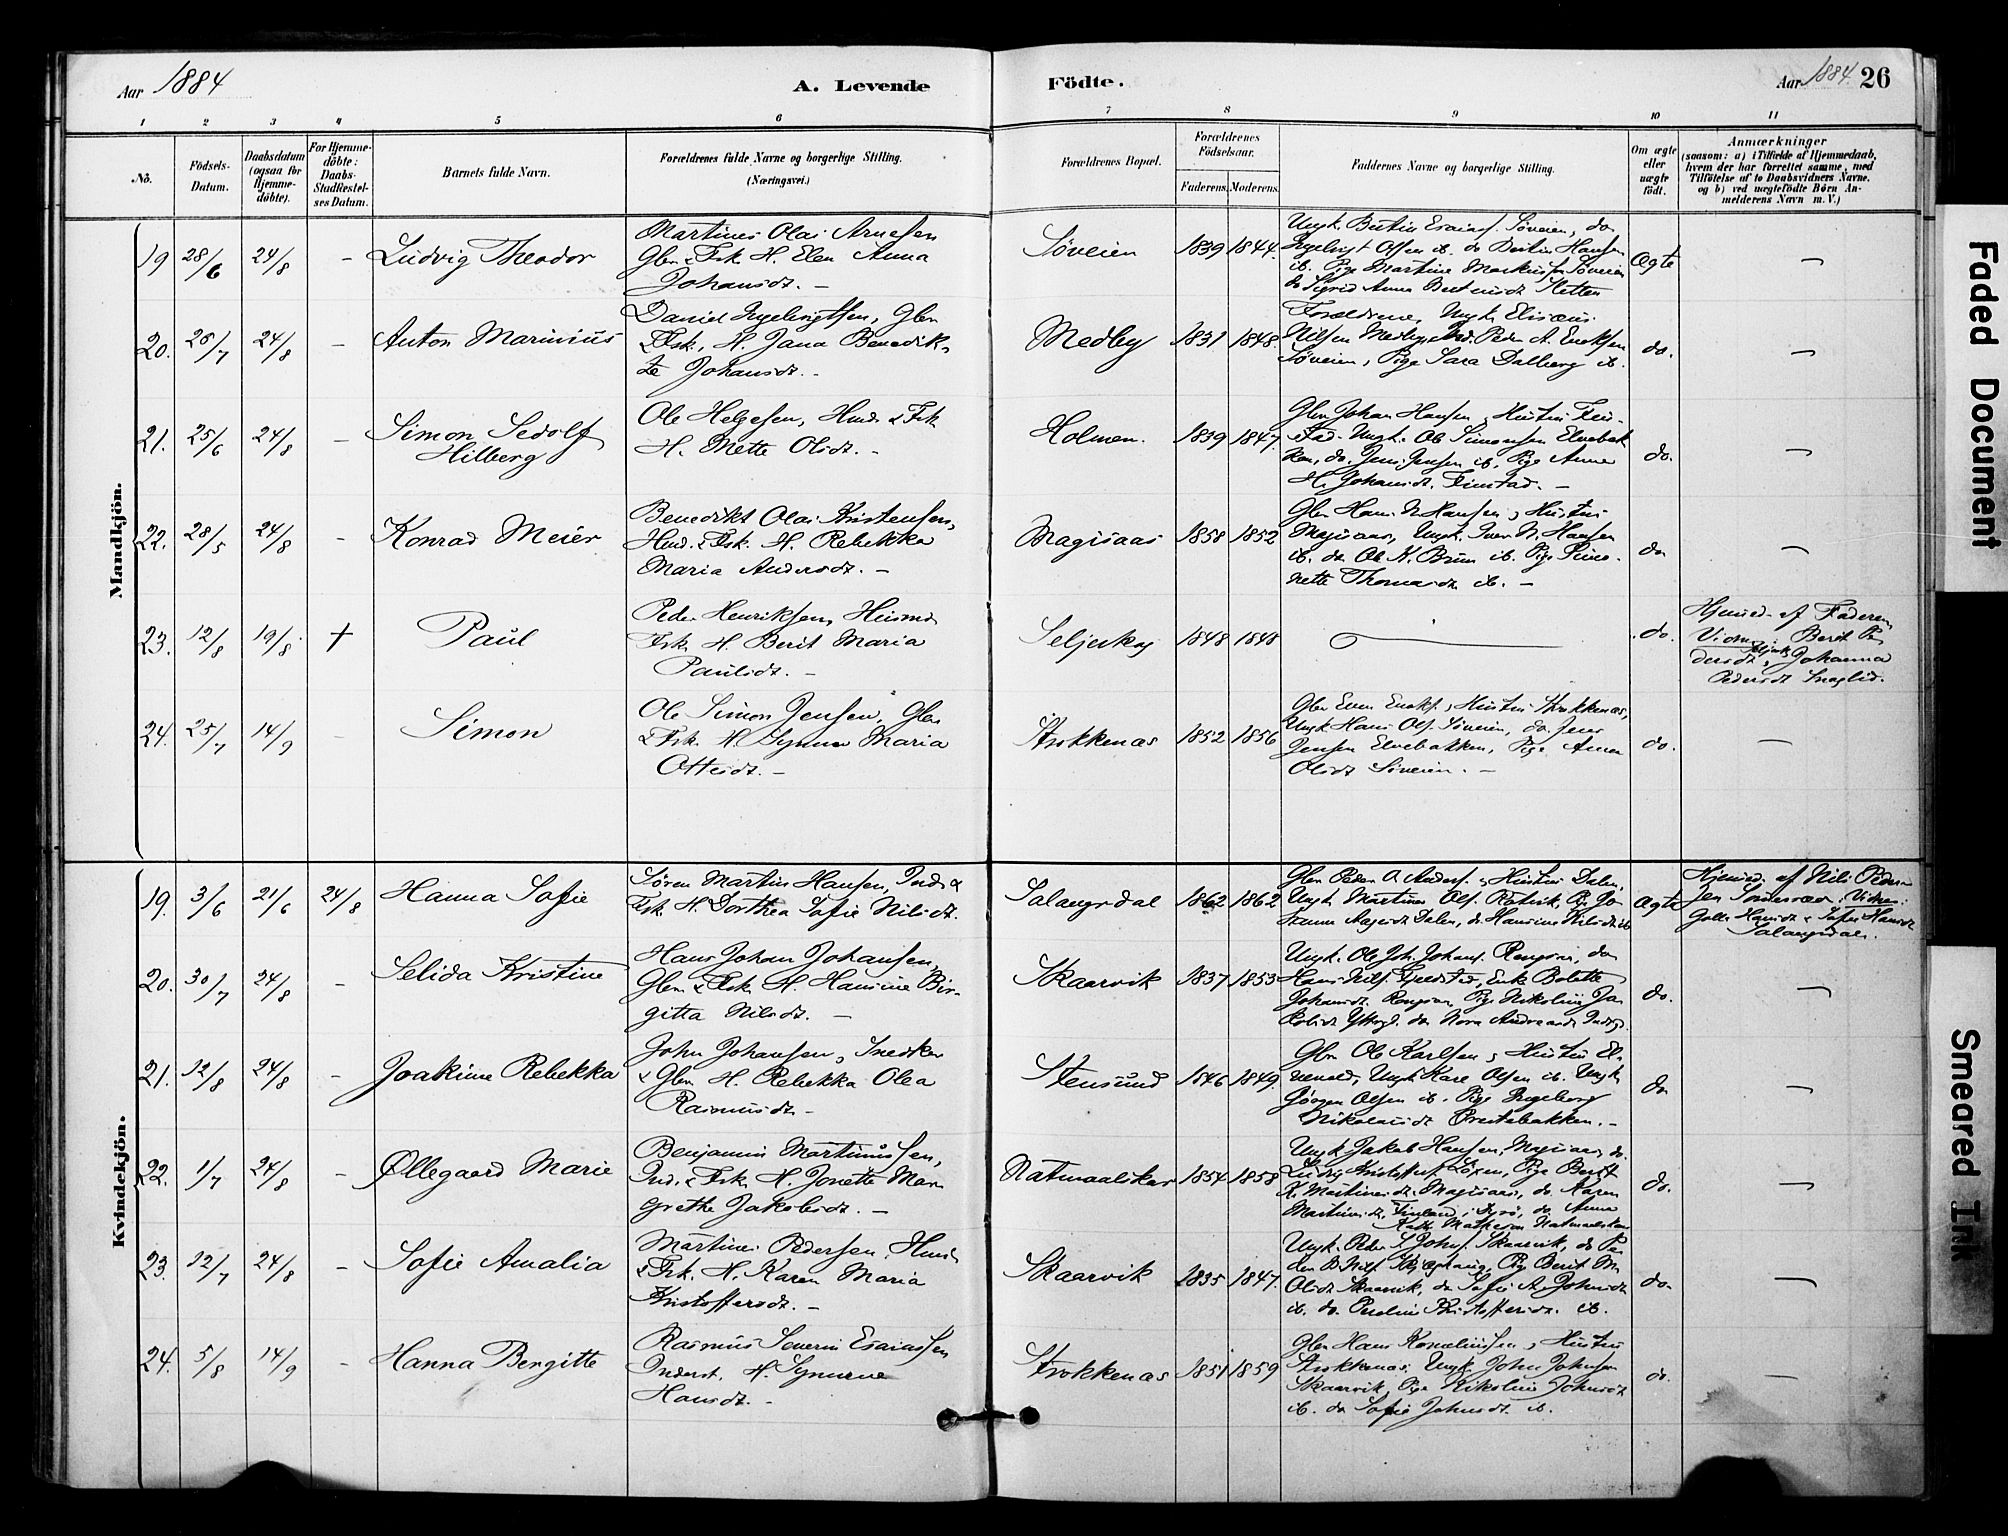 Aar 1884
A. Levende
Födte.
Aar 1884. 26
1 2 3 4 5 6 7 8 9 10 11
No.
Födsels-
Datum.
Daabsdatum
(ogsaa for
Hjemme-
döbte).
For Hjemme-
döbte:
Daabs-
Stadfæstel-
ses Datum.
Barnets fulde Navn.
Forældrenes fulde Navne og borgerlige Stilling.
(Næringsvei.)
Forældrenes Bopæl.
Forældrenes
Födselsaar.
Faderens. Moderens.
Faddernes Navne og borgerlige Stilling.
Om ægte
eller
uægte
födt.
Anmærkninger
(saasom: a) i Tilfælde af Hjemmedaab,
hvem der har forrettet samme, med
Tilföielse af to Daabsvidners Navne.
og b) ved uægtefödte Börn An-
melderens Navn m. V.)
Mandkjön.
19 28/6 24/8 - Ludvig Theodor
Martines Olai Arnesen
Gbr & Fsk. H. Elen Anna
Johansdt. -
Søveien 1839 1844.
Ungk. Bertin Esaias. Søveien, do
Ingebrigt Olsen ib. do Bertin Hansen
ib. Pige Martine Markusdt Søveien
do Sigrid Anna Berntsdt Sletten
Ægte
20. 26/7 24/8 - Anton Marinius
Daniel Ingebrigtsen, Gbr
& Fsk, H. Jana Benedik-
te Johansdt. -
Medby 1831 1848.
Forældrene, Ungk. Elisæus
Nilsen Medby, Ind. Peder A. Enoksen
Søveien, Pige Sara Dalberg ib.
do.
21. 25/6 24/8 - Simon Sedolf
Hilberg
Ole Helgesen, Hmd. & Fsk
H. Mette Olsdt. -
Holmen. 1839 1847.
Gbr Johan Hansen & Hustru Fin-
stad. Ungk. Ole Simonsen Elvebak
ken, do. Jens Jensen ib. Pige Anne
H. Johansdt. Finstad. -
do.
22. 28/5 24/8 - Konrad Meier
Benedikt Olai Kristensen,
Hmd. & Fsk. H. Rebekka
Maria Andersdt. -
Magisaas 1858 1852
Gbr Hans N Hansen & Hustru
Magisaas, Ungk. Iver N. Hansen
ib. do. Ole K. Brun ib. Pige Simo-
nette Thomasdt ib. -
do
23. 12/8 19/8 + Paul
Peder Henriksen, Husmd
Fsk H. Berit Maria
Paulsdt. -
Seljeskog 1848 1848
do.
Hjemmed. af Faderen
Vidner: Berit Pe
dersdt & Johanna
Pedersdt
24. 25/7 14/9 Simon
Ole Simon Jensen, Gbr
& Fsk. H. Synnøv Maria
Ottesdt. -
Strokkenæs 1852 1856
Gbr Even Enoks. & Hustru Strokkenæs,
Ungk Hans Ols. Søveien, do. Jens
Jensen Elvebakken, Pige Anna
Olsdt Søveien. -
do.
Kvindekjön.
19. 3/6 21/6 24/8 Hanna Sofie
Søren Martin Hansen, Inds &
Fsk. H. Dorthea Sofie Nilsdt.
Salangsdal 1862 1862
Gbr Peder A Anders. & Hustru Dalen,
Ungk. Martinus Ols. Rotvik, Pi. Jo-
hanna Aagesdt Dalen, do. Hansine Nilsdt ib
Ægte
Hjemmed. af Nils Peder-
sen Vidner:
Hansdt & Sofie Hansdt
Salangsdal.
20. 30/7 24/8 - Selida Kristine
Hans Johan Johansen,
Gbr. & Fsk. H. Hansine Bir-
gitta Nilsdt. -
Skaarvik 1837 1853
Ungk. Ole Joh. Johans. do
Hans Nils. Fjeldstad, Enke Bolette
Johansdt. Pige Nikoline Ja-
kobsdt
do.
21. 12/8 24/8 - Joakime Rebekka
John Johansen, Snedker
& Gbr. H. Rebekka Olea
Rasmusdt. -
Stensund 1846 1849.
Gbr Ole Karlsen & Hustru El-
vevold, Ungk. Kare Olsen ib. Ungk
Jørgen Olsen ib. Pige Ingeborg
Nikolaisdt
do
22. 1/7 24/8 - Øllegaard Marie
Benjamin Martinussen,
Ind. & Fsk. H. Jonette Mar-
grethe Jakobsdt. -
Natmaalskar 1854 1858
Ungk Jakob Hansen Magisaas do.
Ludvig Kristoffers. Pige Berit
K. Martinesdt. Magisaas, do. Karen
Martinsdt. Finland, do. Anna
Kath. Natmaalskar
do.
23. 12/7 24/8 - Sofie Amalia
Martines Pedersen Hmd
& Fsk. H. Karen Maria
Kristoffersdt. -
Skaarvik 1835 1847.
Ungk. Peder S Johns. Skaarvik, do Pe
der B. Nils. Pig. Berit M.
Olsdt Skaarvik, do Sofie A. Johnsdt
ib. do. Kristoffersdt. ib.
do
24. 5/8 14/9 - Hanna Bergitte
Rasmus Severin Esaiassen
Inderst. H. Synnøve
Hansdt. -
Strokkenæs 1851 1859
Gbr Hans Kornelinssen & Hustru
Strokkenæs, Ungk John Johnsen
Skaarvik, Pige Nikoline Johnsdt
ib. do Sofie Johnsdt. ib.
do.
Faded Document
Smeared Ink